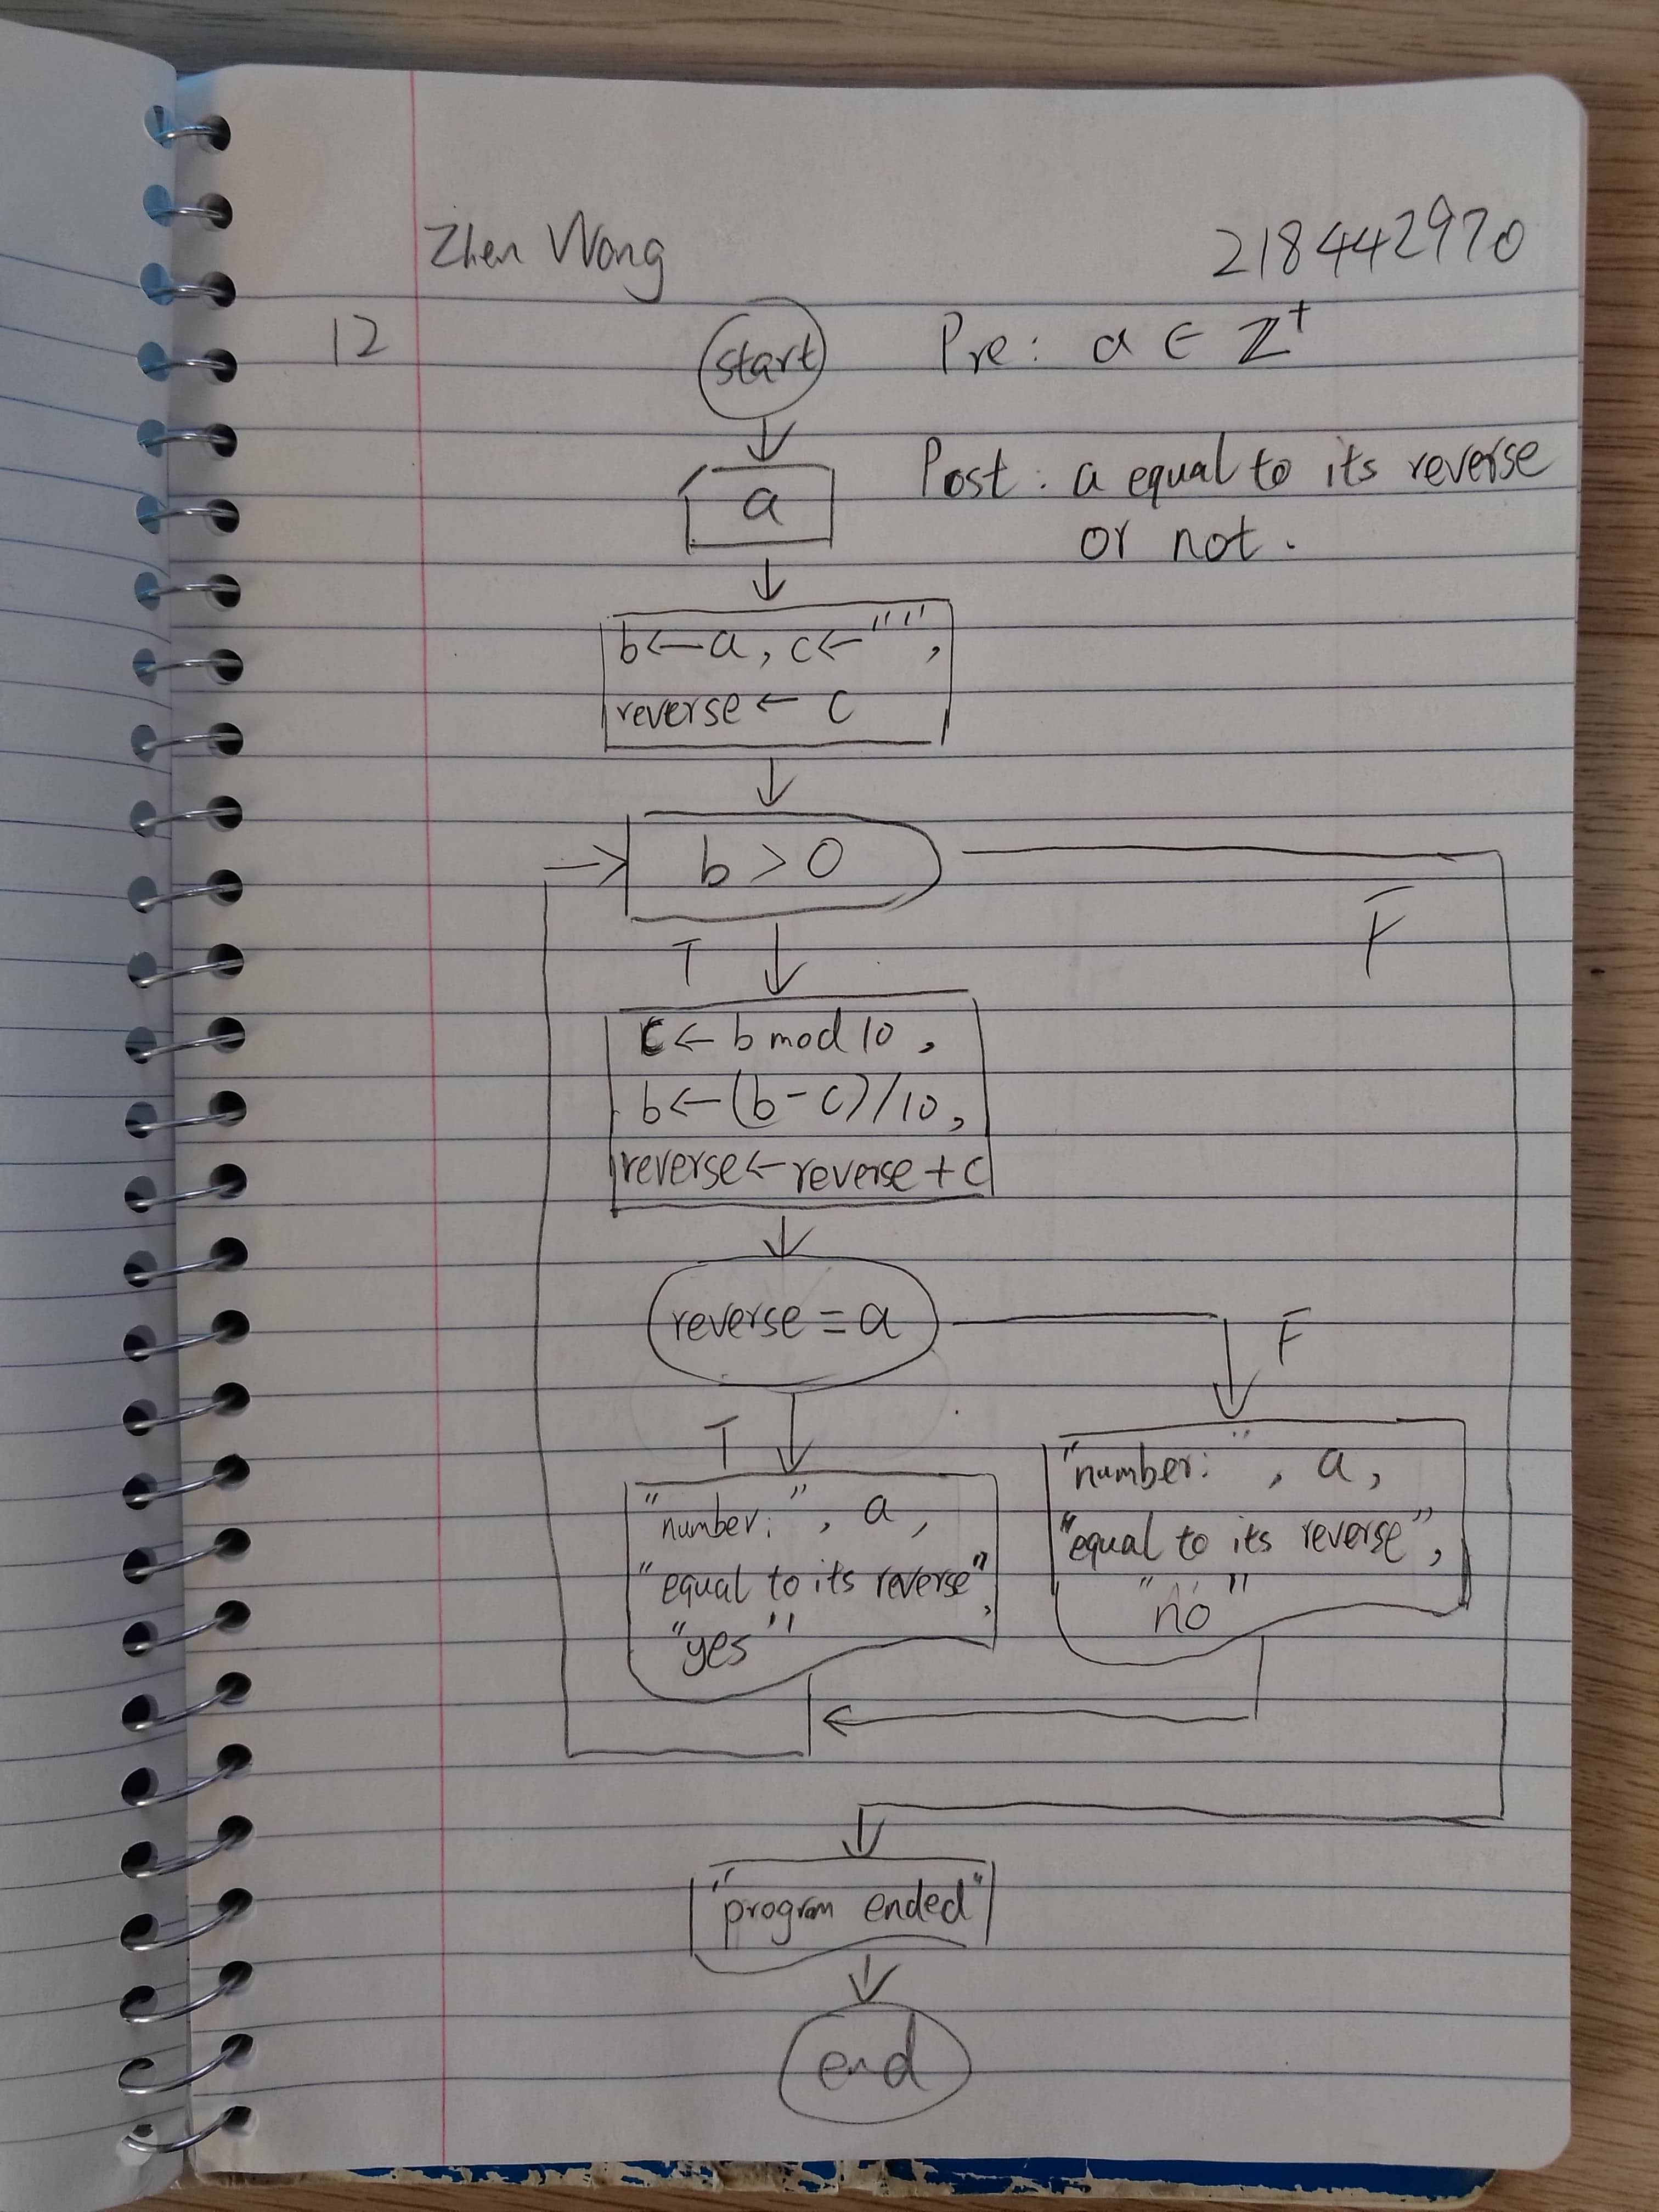 Zhen Wang 218442970
12
start Pre: a ∈ ℤ⁺
a Post: a equal to its reverse
or not.
b←a, c←"",
reverse ← c
b > 0
T F
c ← b mod 10,
b ← (b-c)/10,
reverse ← reverse + c
reverse = a
F
T
"number:", a,
"equal to its reverse",
"yes"
"number:", a,
"equal to its reverse",
"no"
"program ended"
end